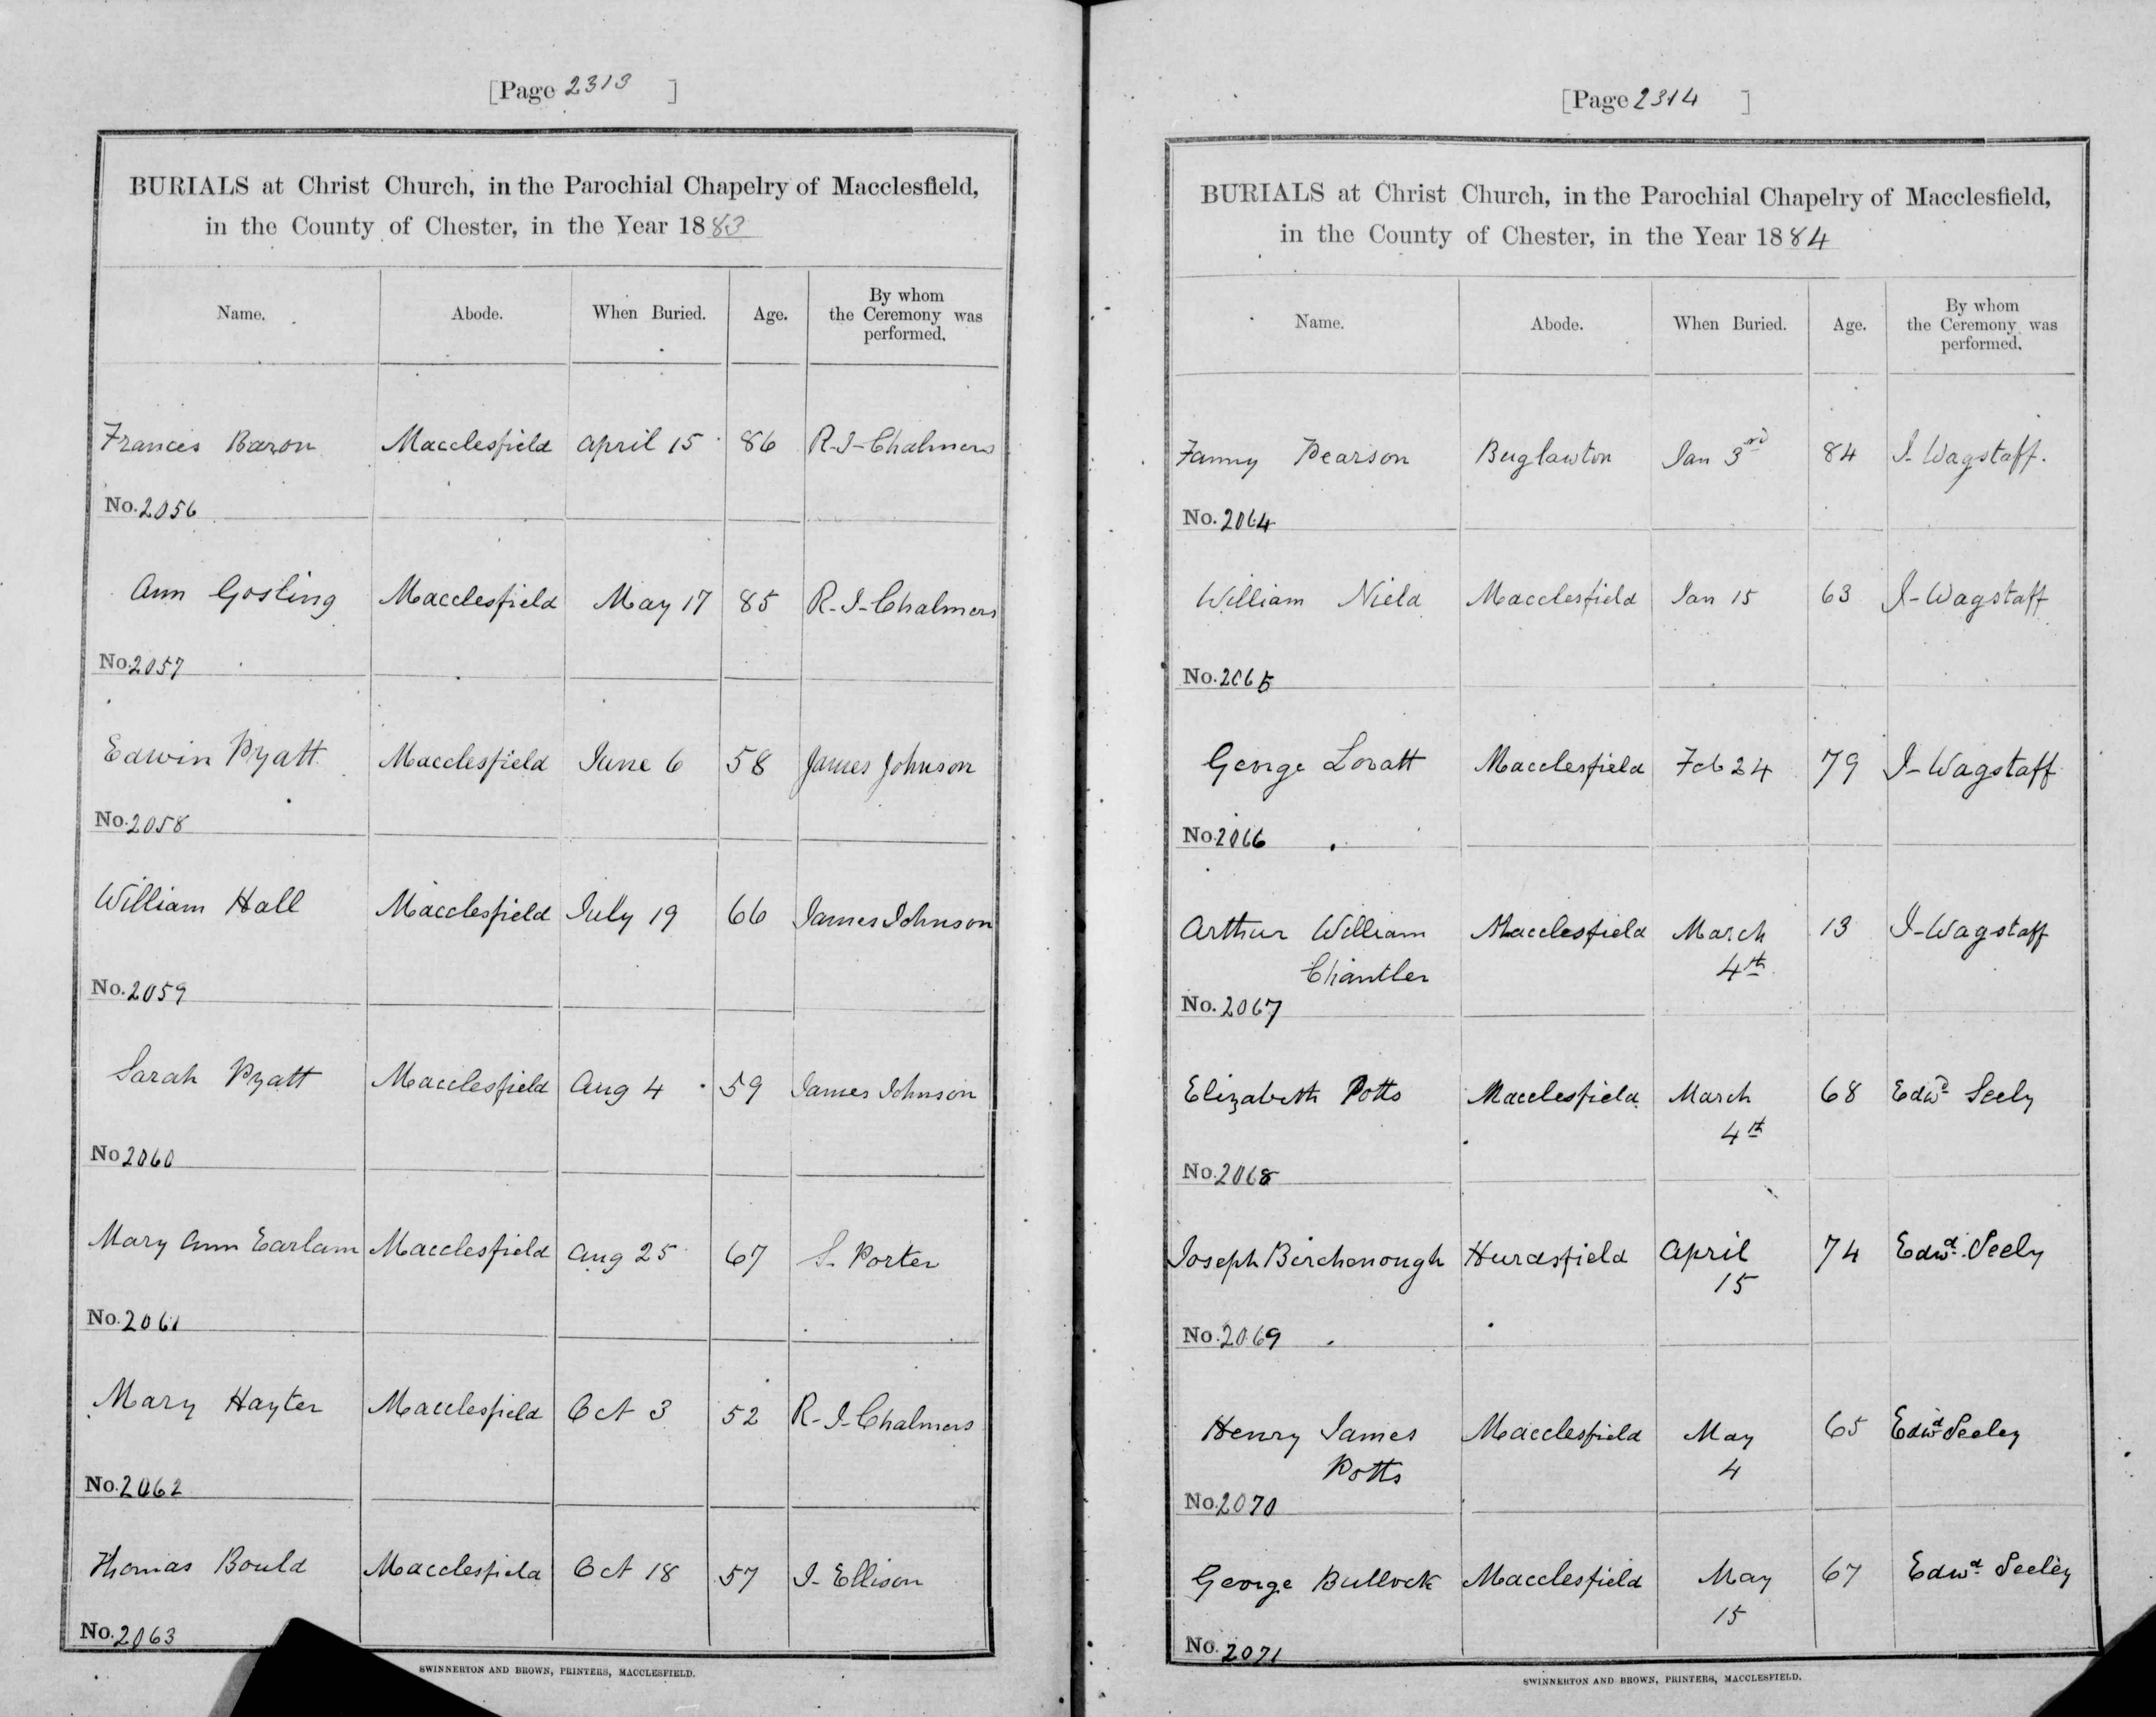 [Page 2313 ]
BURIALS at Christ Church, in the Parochial Chapelry of Macclesfield,
in the County of Chester, in the Year 1883
Name. Abode. When Buried. Age. By whom the Ceremony was performed.
Francis Baron Macclesfield April 15 86 R-J-Chalmers
No. 2056
Ann Gosling Macclesfield May 17 85 R-J-Chalmers
No. 2057
Edwin Pyatt Macclesfield June 6 58 James Johnson
No. 2058
William Hall Macclesfield July 19 66 James Johnson
No. 2059
Sarah Pyatt Macclesfield Aug 4 59 James Johnson
No 2060
Mary Ann Earlam Macclesfield Aug 25 67 S. Porter
No. 2061
Mary Hayter Macclesfield Oct 3 52 R-J-Chalmers
No. 2062
Thomas Bould Macclesfield Oct 18 57 J-Ellison
No. 2063
SWINNERTON AND BROWN, PRINTERS, MACCLESFIELD.
[Page 2314 ]
BURIALS at Christ Church, in the Parochial Chapelry of Macclesfield,
in the County of Chester, in the Year 1884
Name. Abode. When Buried. Age. By whom the Ceremony was performed.
Fanny Pearson Buglawton Jan 3rd 84 J-Wagstaff.
No. 2064
William Nield Macclesfield Jan 15 63 J-Wagstaff
No. 2065
George Lovatt Macclesfield Feb 24 79 J-Wagstaff
No. 2066
Arthur William Macclesfield March 13 J-Wagstaff
Chantler 4th
No. 2067
Elizabeth Potts Macclesfield March 68 Edwd Seely
4th
No. 2068
Joseph Birchenough Hurdsfield April 74 Edwd Seely
15
No. 2069
Henry James Macclesfield May 65 Edwd Seeley
Potts 4
No. 2070
George Bullock Macclesfield May 67 Edwd Seeley
15
No. 2071
SWINNERTON AND BROWN, PRINTERS, MACCLESFIELD.